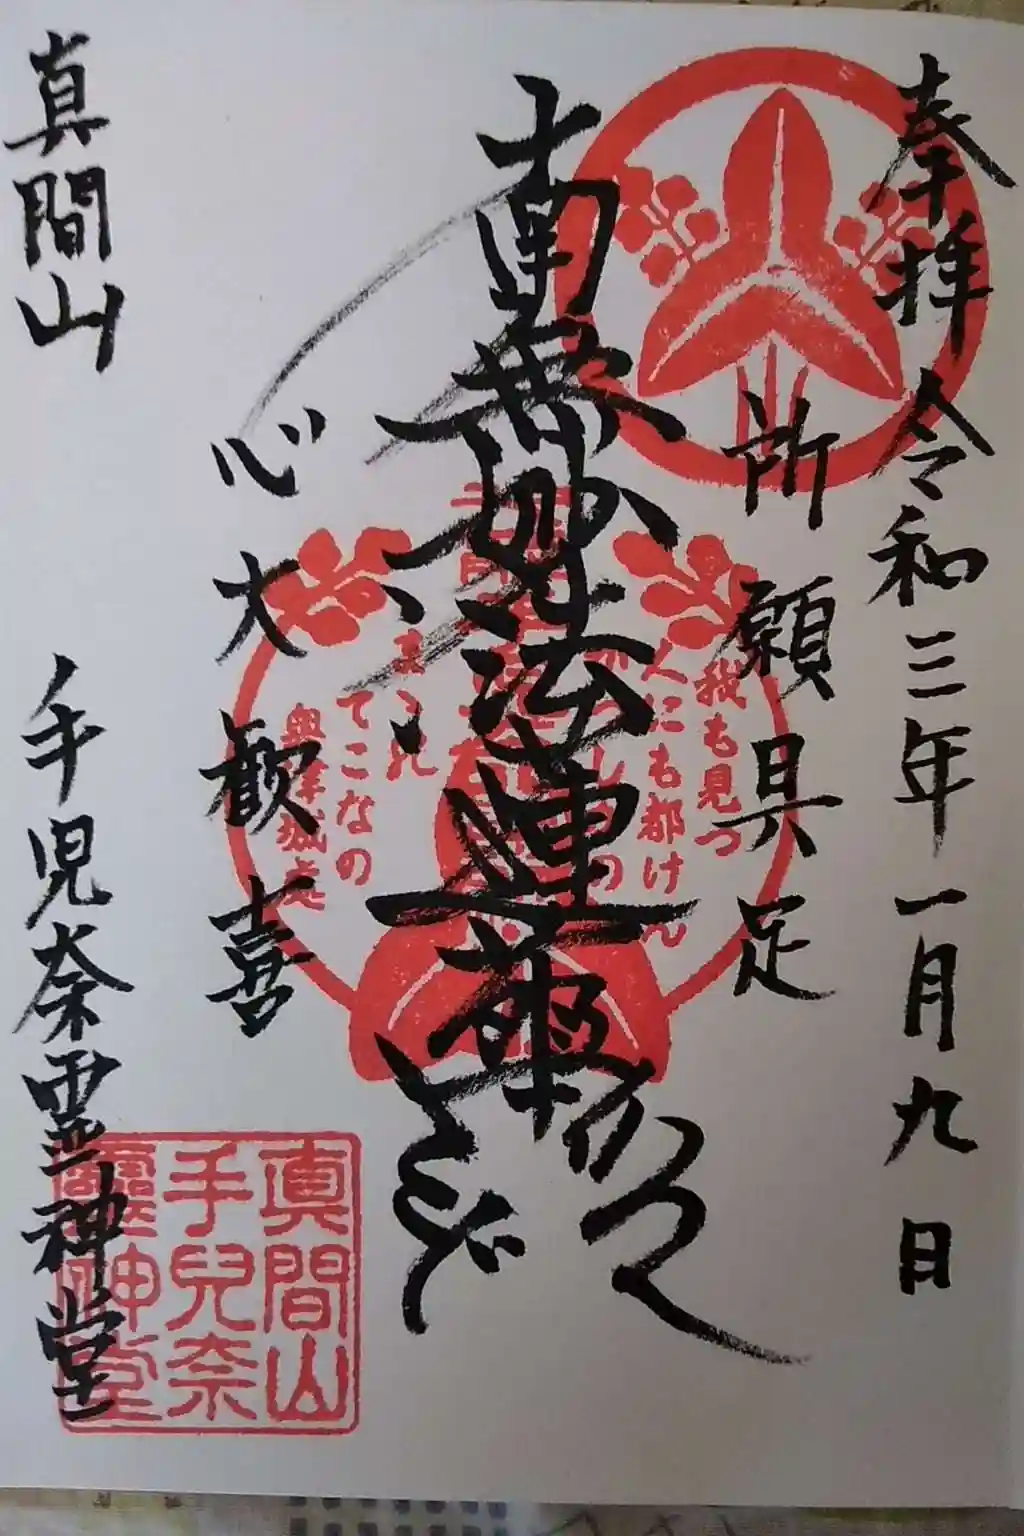 奉拝 令和三年一月九日
所願具足
南無妙法蓮華経
心大歓喜
真間山
手児奈霊神堂
我も見つ
人にも都けん
てこなの
奥津城处
真間山
手兒奈
靈神堂